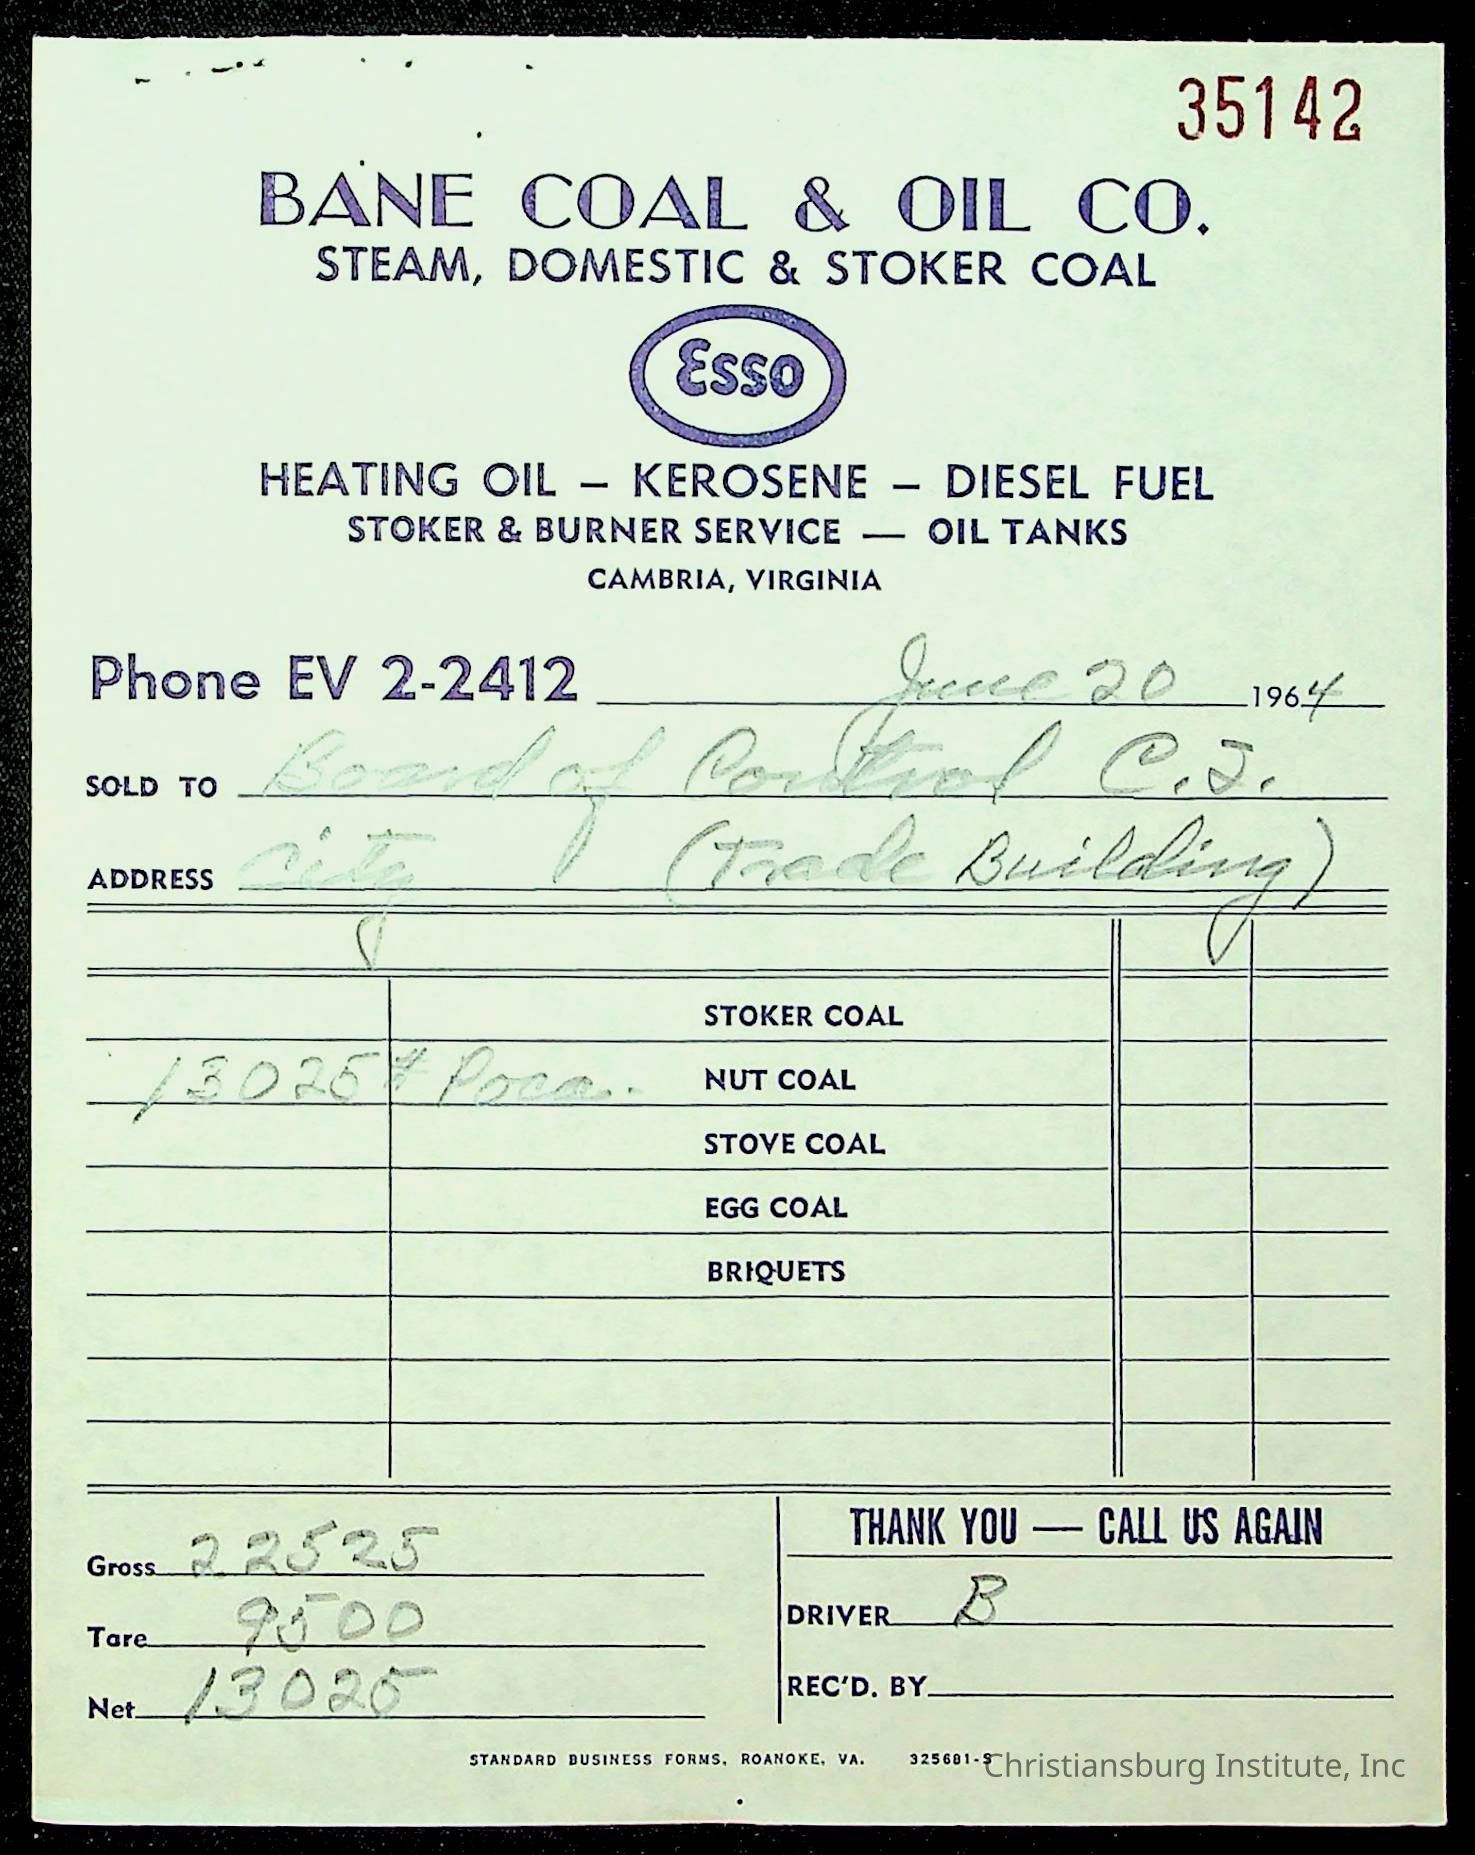 35142
BANE COAL & OIL CO.
STEAM, DOMESTIC & STOKER COAL
Esso
HEATING OIL – KEROSENE – DIESEL FUEL
STOKER & BURNER SERVICE — OIL TANKS
CAMBRIA, VIRGINIA
Phone EV 2-2412 June 20 1964
SOLD TO Board of Control C.I.
ADDRESS City (Trade Building)
STOKER COAL
13025 # Poca. NUT COAL
STOVE COAL
EGG COAL
BRIQUETS
Gross 22525
Tare 9500
Net 13025
THANK YOU — CALL US AGAIN
DRIVER B
REC'D. BY
STANDARD BUSINESS FORMS, ROANOKE, VA. 325681-S
Christiansburg Institute, Inc